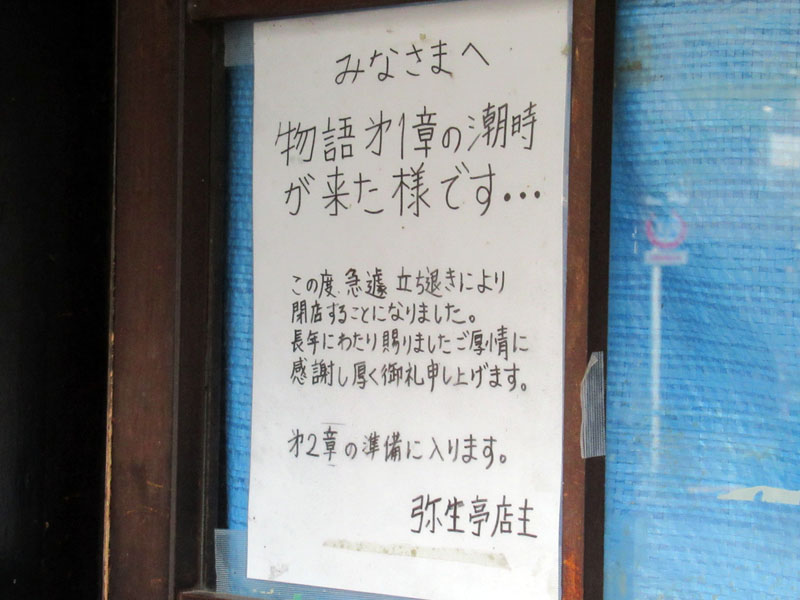 みなさまへ
物語㐧1章の潮時
が来た様です…
この度、急遽 立ち退きにより
閉店することになりました。
長年にわたり賜りましたご厚情に
感謝し厚く御礼申し上げます。
㐧2章の準備に入ります。
弥生亭店主